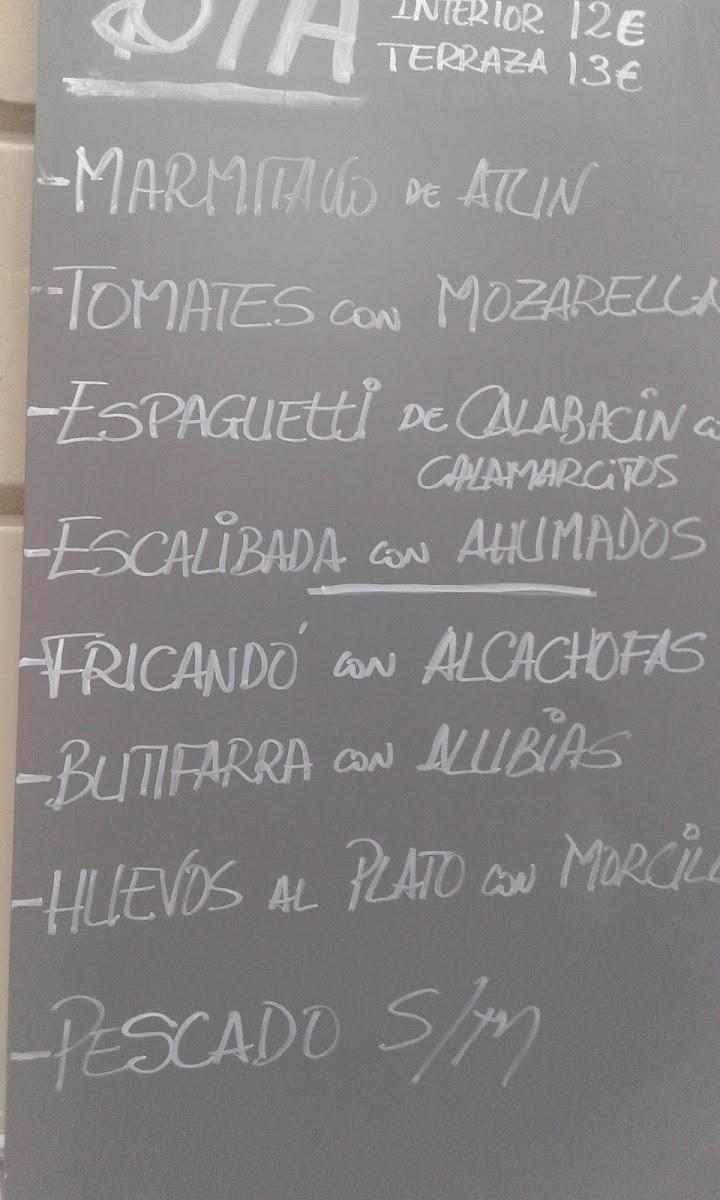 DIA
INTERIOR 12€
TERRAZA 13€
-MARMITACO DE ATUN
-TOMATES CON MOZARELLA
-ESPAGUETTI DE CALABACIN CO
CALAMARCITOS
-ESCALIBADA CON AHUMADOS
-FRICANDÓ CON ALCACHOFAS
-BUTIFARRA CON ALUBIAS
-HUEVOS AL PLATO CON MORCILL
-PESCADO S/M